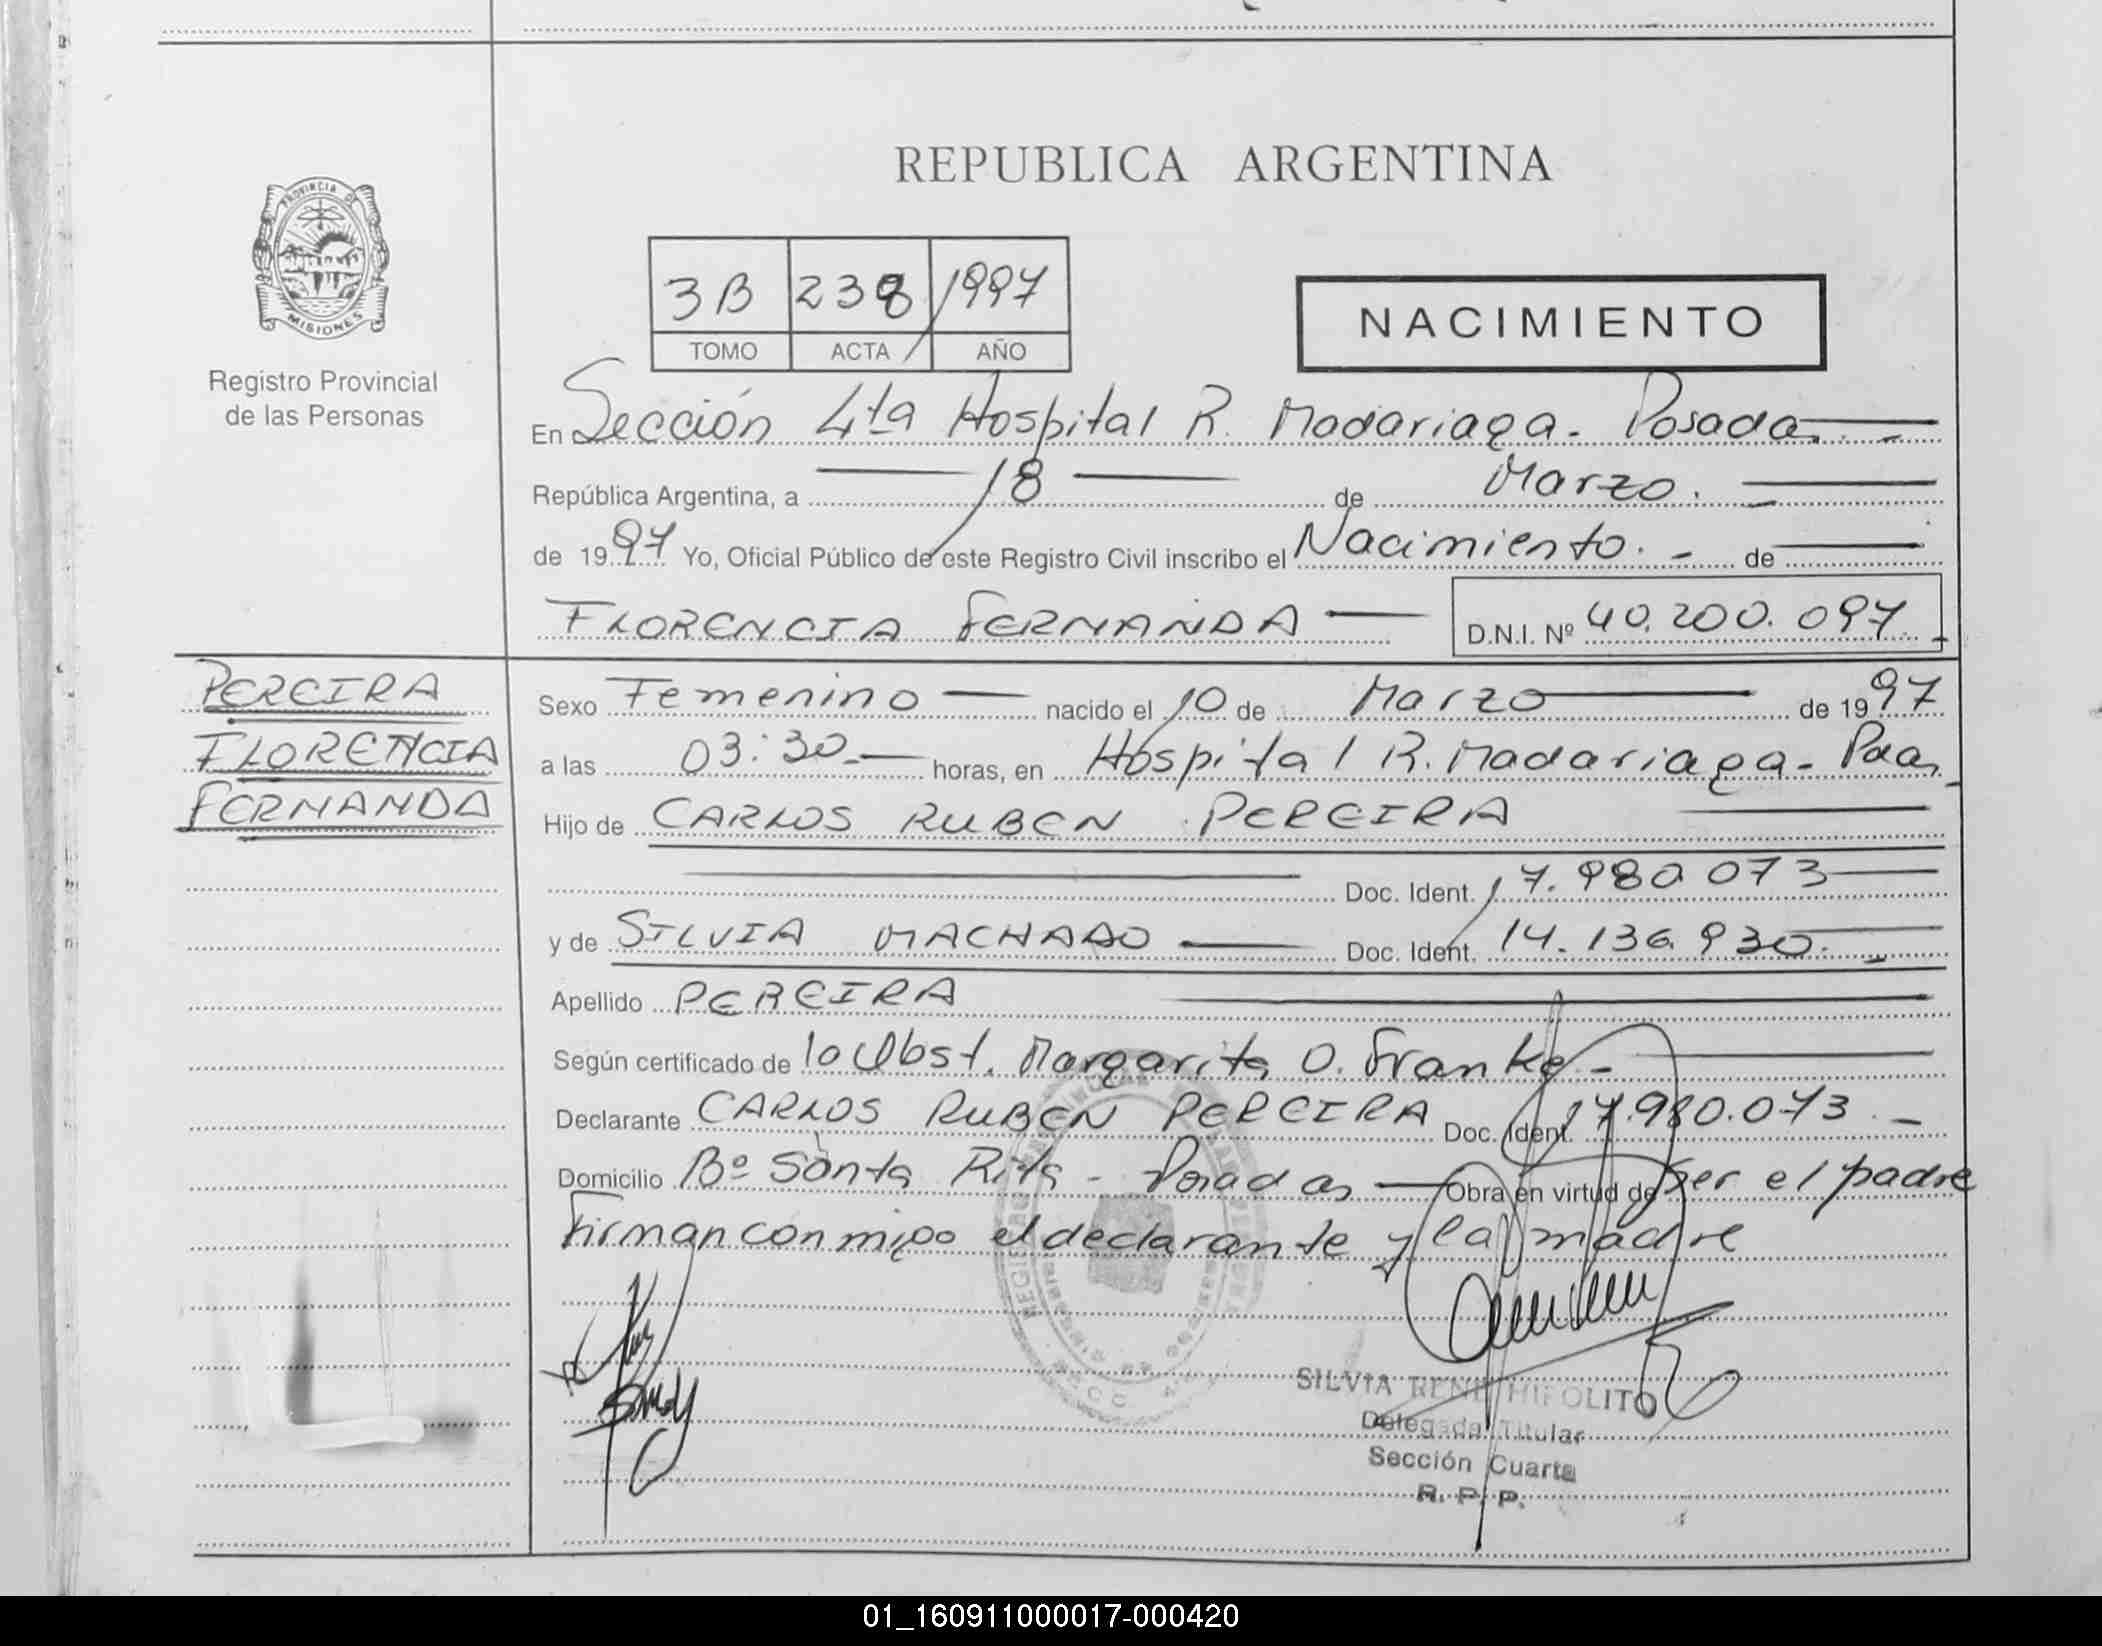 REPUBLICA ARGENTINA
PROVINCIA DE
MISIONES
Registro Provincial
de las Personas
3B 238 1997
TOMO ACTA AÑO
NACIMIENTO
En Sección 4ta Hospital R. Madariaga - Posadas -
República Argentina, a 18 de Marzo. -
de 1997 Yo, Oficial Público de este Registro Civil inscribo el Nacimiento. - de
FLORENCIA FERNANDA D.N.I. Nº 40.200.097. -
PEREIRA
FLORENCIA
FERNANDA
Sexo Femenino nacido el 10 de Marzo de 1997
a las 03:30 - horas, en Hospital R. Madariaga - Pdas. -
Hijo de CARLOS RUBEN PEREIRA
Doc. Ident. 17.980.073
y de SILVIA MACHADO Doc. Ident. 14.136.930. -
Apellido PEREIRA
Según certificado de la Obst. Margarita O. Franke -
Declarante CARLOS RUBEN PEREIRA Doc. Ident. 17.980.073. -
Domicilio Bº Santa Rita - Posadas - Obra en virtud de ser el padre
Firman conmigo el declarante y la madre
SILVIA RENE HIPOLITO
Delegada Titular
Sección Cuarta
R. P. P.
01_160911000017-000420